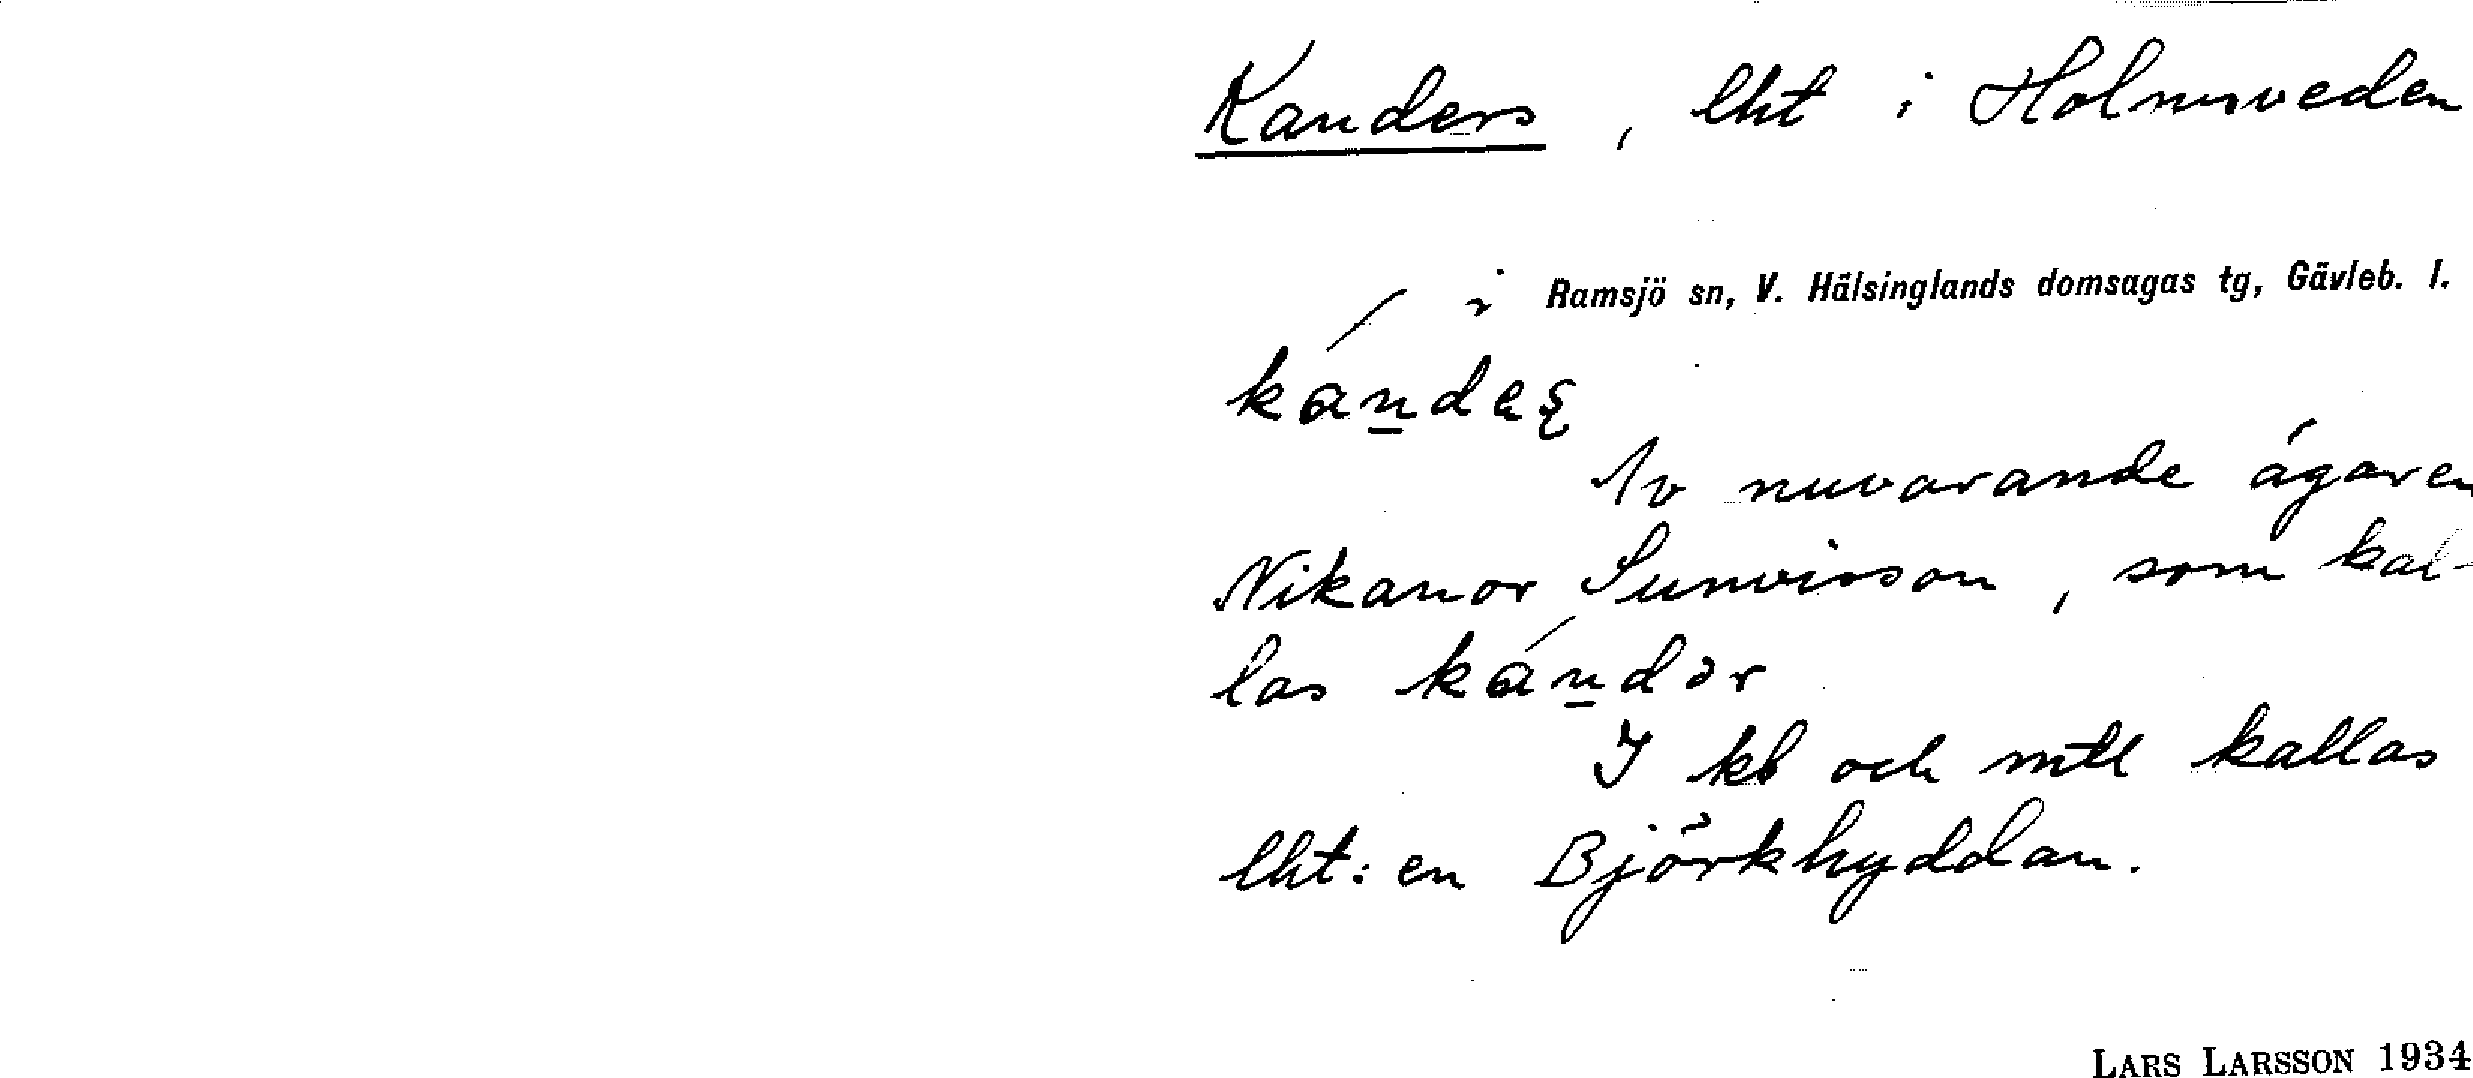 Kanders, lht i Holmsveden
i Ramsjö sn, V. Hälsinglands domsagas tg, Gävleb. l.
Av nuvarande ägaren
Nikanor Sunvisson, som kal-
las kándər
I kb och mtl kallas
lht:en Björkhyddan.
LARS LARSSON 1934